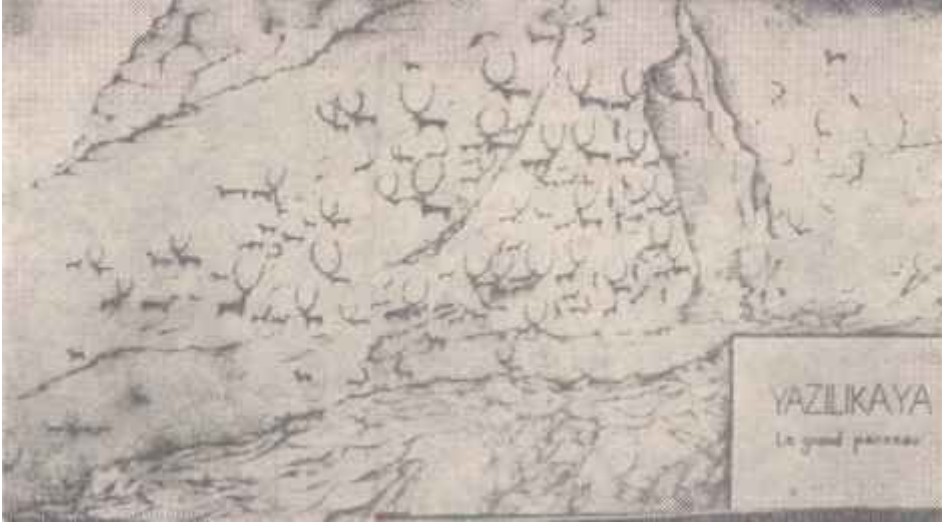 YAZILIKAYA
Le grand panneau